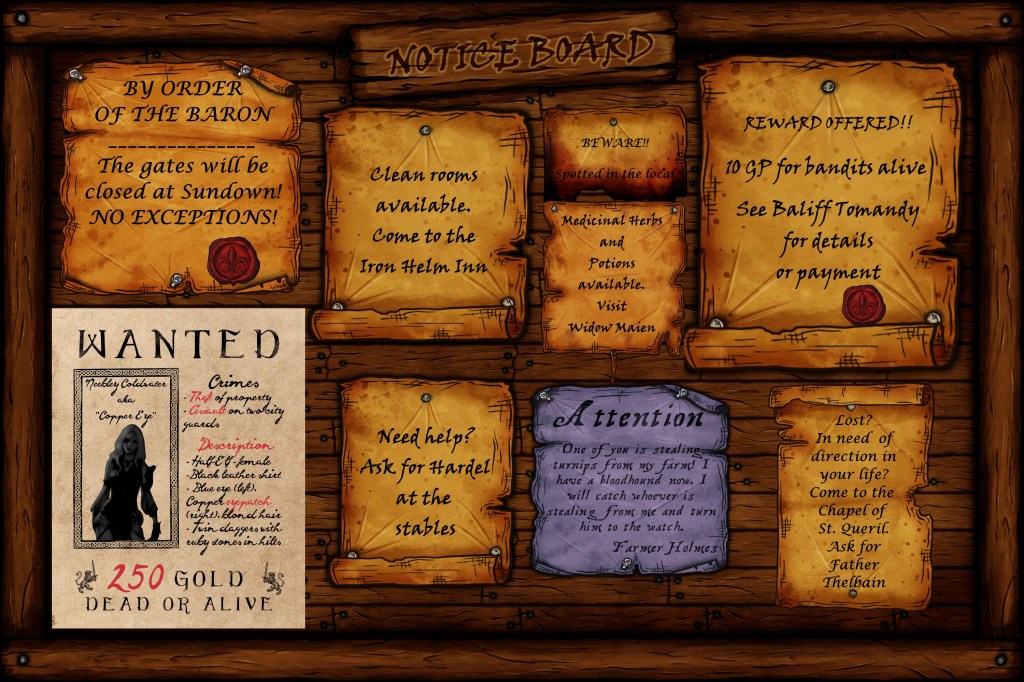 NOTICE BOARD
BY ORDER
OF THE BARON
_______________
The gates will be
closed at Sundown!
NO EXCEPTIONS!
Clean rooms
available.
Come to the
Iron Helm Inn
BEWARE!!
Spotted in the local
Medicinal Herbs
and
Potions
available.
Visit
Widow Maien
REWARD OFFERED!!
10 GP for bandits alive
See Baliff Tomandy
for details
or payment
WANTED
Neebley Coldwater
aka
"Copper Eye"
Crimes
- Theft of property
- Assault on two city
guards
Description
- Half-Elf - female
- Black leather shirt
- Blue eye (left),
Copper eyepatch
(right), blond hair
- Twin daggers with
ruby stones in hilts
250 GOLD
DEAD OR ALIVE
Need help?
Ask for Hardel
at the
stables
Attention
One of you is stealing
turnips from my farm! I
have a bloodhound now. I
will catch whoever is
stealing from me and turn
him to the watch.
Farmer Holmes
Lost?
In need of
direction in
your life?
Come to the
Chapel of
St. Queril.
Ask for
Father
Thelbain